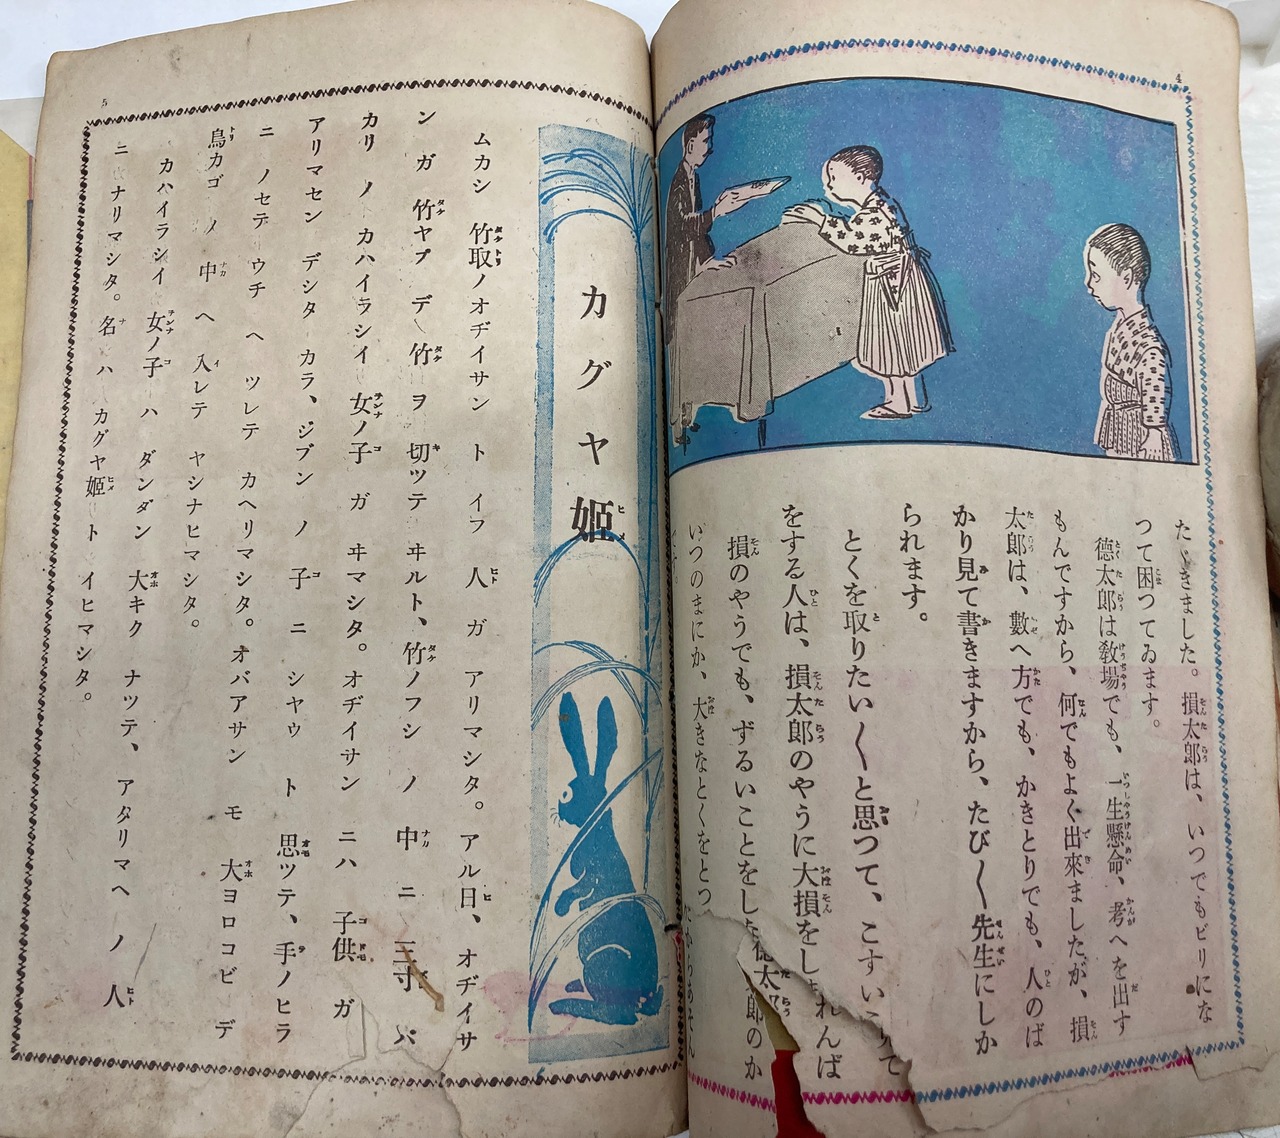 4
たゝきました。損太郎は、いつでもビリにな
つて困つてゐます。
德太郎は教場でも、一生懸命、考へを出す
もんですから、何でもよく出來ましたが、損
太郎は、數へ方でも、かきとりでも、人のば
かり見て書きますから、たび〱先生にしか
られます。
とくを取りたい〱と思つて、こすい
をする人は、損太郎のやうに大損をし
れんば
損のやうでも、ずるいことをし
德太郎のか
いつのまにか、大きなとくをとつ
5
カグヤ姬
ムカシ 竹取ノオヂイサン ト イフ 人 ガ アリマシタ。アル日、オヂイサ
ン ガ 竹ヤブ デ 竹 ヲ 切ツテ ヰルト、竹ノフシ ノ 中 ニ 三寸 バ
カリ ノ カハイラシイ 女ノ子 ガ ヰマシタ。オヂイサン ニハ 子供 ガ
アリマセン デシタ カラ、ジブン ノ 子 ニ シヤウ ト 思ツテ、手ノヒラ
ニ ノセテ ウチ ヘ ツレテ カヘリマシタ。オバアサン モ 大ヨロコビ デ
鳥カゴ ノ 中 ヘ 入レテ ヤシナヒマシタ。
カハイラシイ 女ノ子 ハ ダンダン 大キク ナツテ、アタリマヘ ノ 人
ニ ナリマシタ。名 ハ カグヤ姬 ト イヒマシタ。